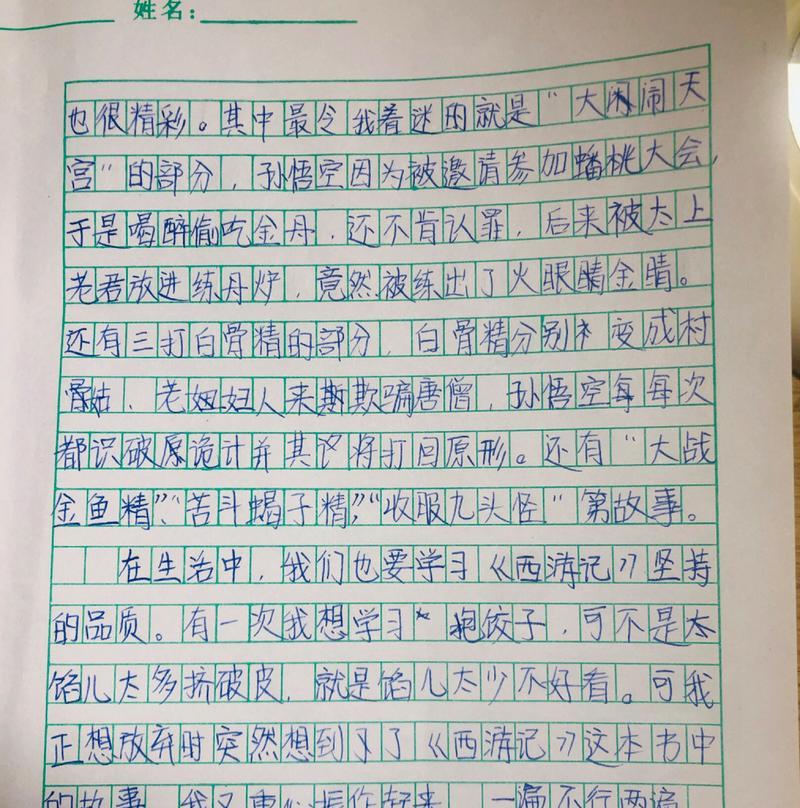 姓名：
也很精彩。其中最令我着迷的就是“大闹闹天
宫”的部分，孙悟空因为被邀请参加蟠桃大会，
于是喝醉偷吃金丹，还不肯认罪，后来被太上
老君放进练丹炉，竟然被练出了火眼睛金睛。
还有三打白骨精的部分，白骨精分别变成村
姑、老妇人来欺骗唐僧，孙悟空每每次
都识破原诡计并其将打回原形。还有“大战
金鱼精”、“苦斗蝎子精”，“收服九头怪”第故事。
在生活中，我们也要学习《西游记》坚持
的品质。有一次我想学习包饺子，可不是太
馅儿太多挤破皮，就是馅儿太少不好看。可我
正想放弃时突然想到了《西游记》这本书中
的故事，我又重振作起来，一遍不行两遍